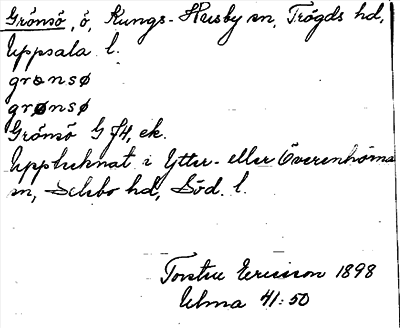 Grönsö, ö, Kungs-Husby sn, Trögds hd,
Uppsala l.
grənsø
grønsø
Grönsö G JH, ek.
Upptecknat i Ytter- eller Överenhörna
sn, Selebo hd, Söd. l.
Torsten Ericsson 1898
Ulma 41:50